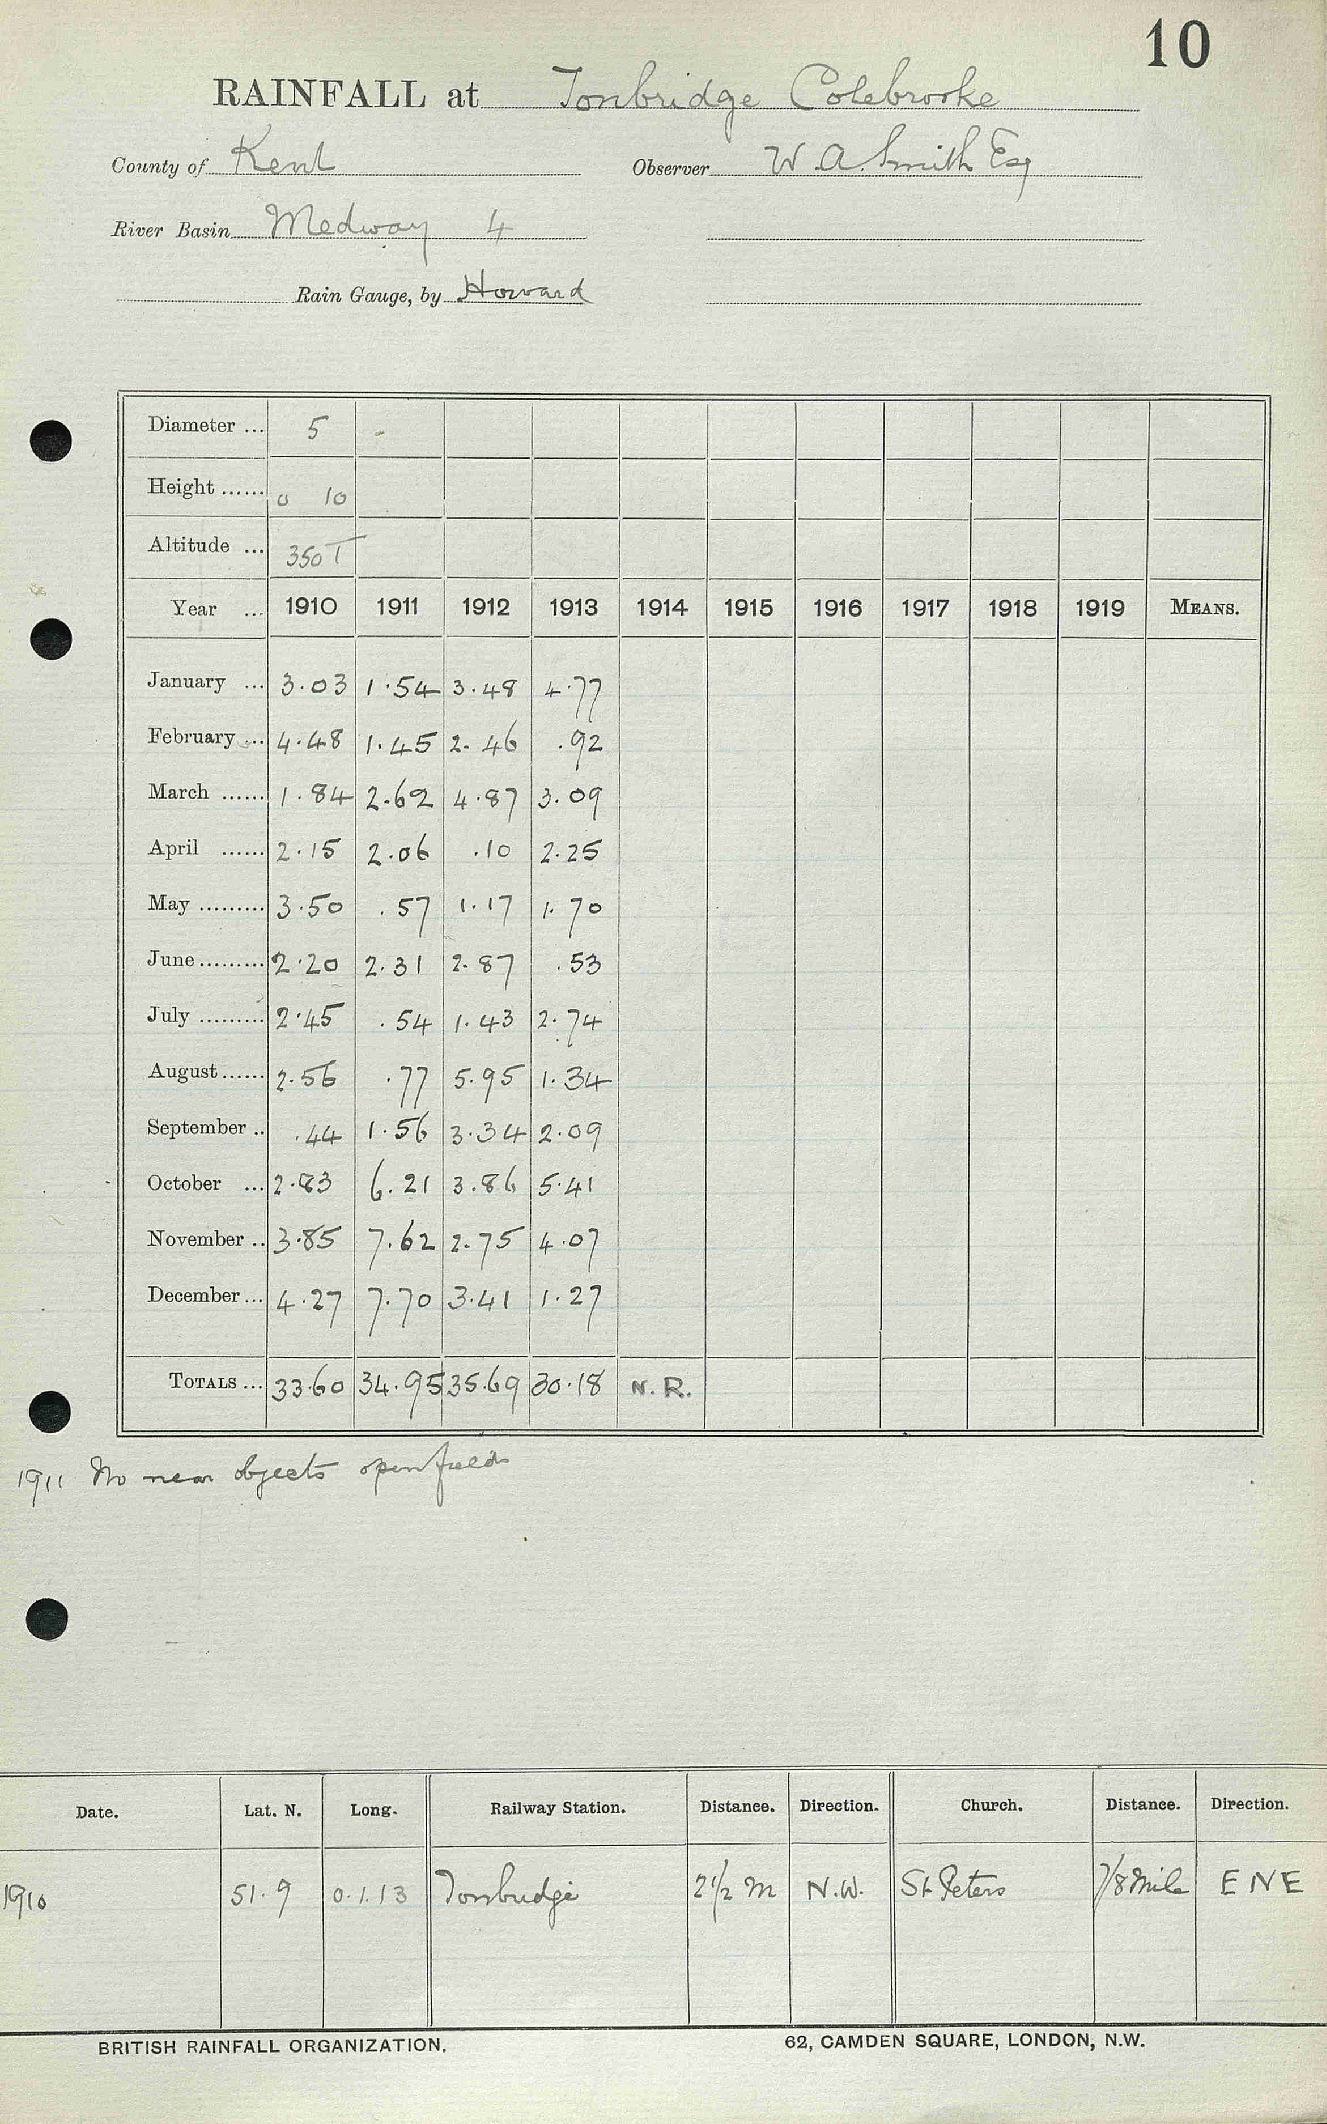 10
RAINFALL at Tonbridge Colebrooke
County of Kent Observer W. A. Smith Esq
River Basin Medway 4
Rain Gauge, by Howard
Diameter ... 5 -
Height ...... 0 10
Altitude ... 350 T
Year ... 1910 1911 1912 1913 1914 1915 1916 1917 1918 1919 MEANS.
January ... 3.03 1.54 3.48 4.77
February ... 4.48 1.45 2.46 .92
March ...... 1.84 2.62 4.87 3.09
April ...... 2.15 2.06 .10 2.25
May ......... 3.50 .57 1.17 1.70
June ......... 2.20 2.31 2.87 .53
July ......... 2.45 .54 1.43 2.74
August ...... 2.56 .77 5.95 1.34
September .. .44 1.56 3.34 2.09
October ... 2.83 6.21 3.86 5.41
November .. 3.85 7.62 2.75 4.07
December ... 4.27 7.70 3.41 1.27
TOTALS ... 33.60 34.95 35.69 30.18 N.R.
1911 No near objects open fields
Date. Lat. N. Long. Railway Station. Distance. Direction. Church. Distance. Direction.
1910 51.9 0.1.13 Tonbridge 2½ M N.W. St. Peters 7/8 Mile ENE
BRITISH RAINFALL ORGANIZATION. 62, CAMDEN SQUARE, LONDON, N.W.